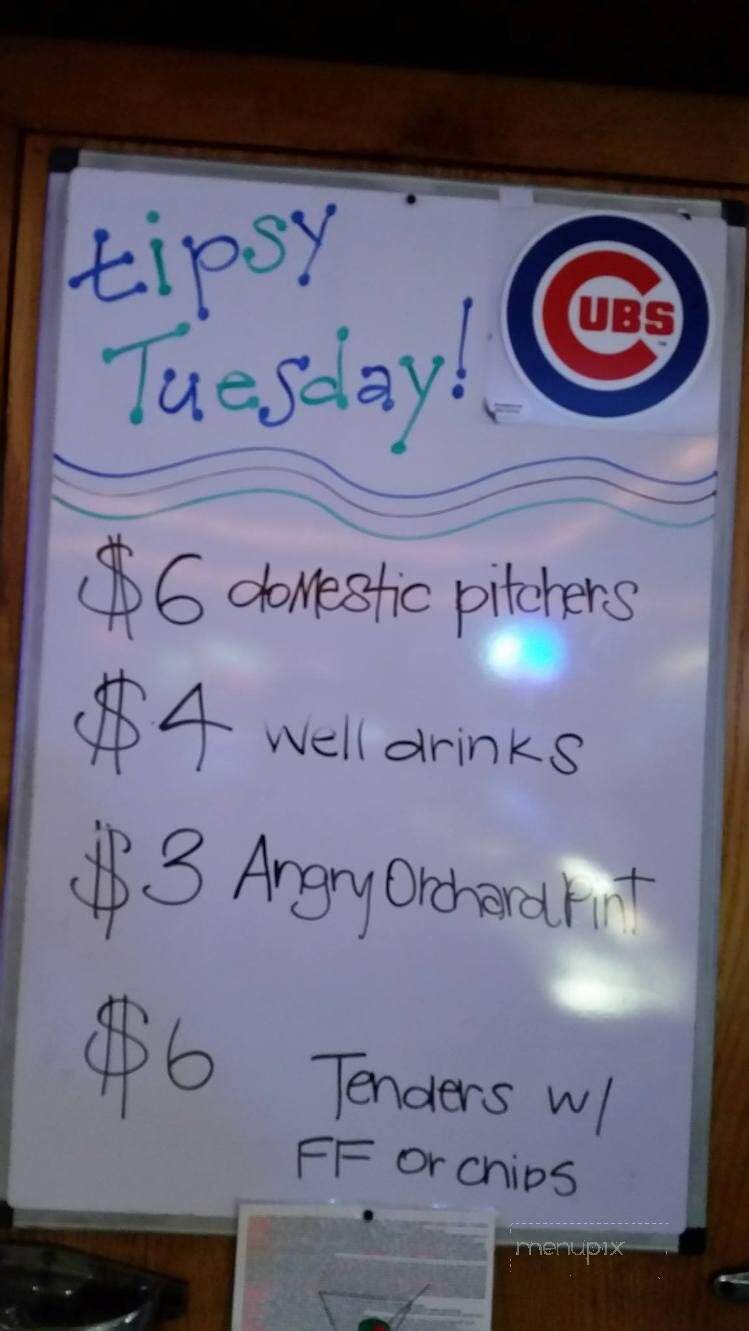 tipsy
Tuesday!
CUBS
$6 domestic pitchers
$4 well drinks
$3 Angry Orchard Pint
$6 Tenders w/
FF or chips
menupix